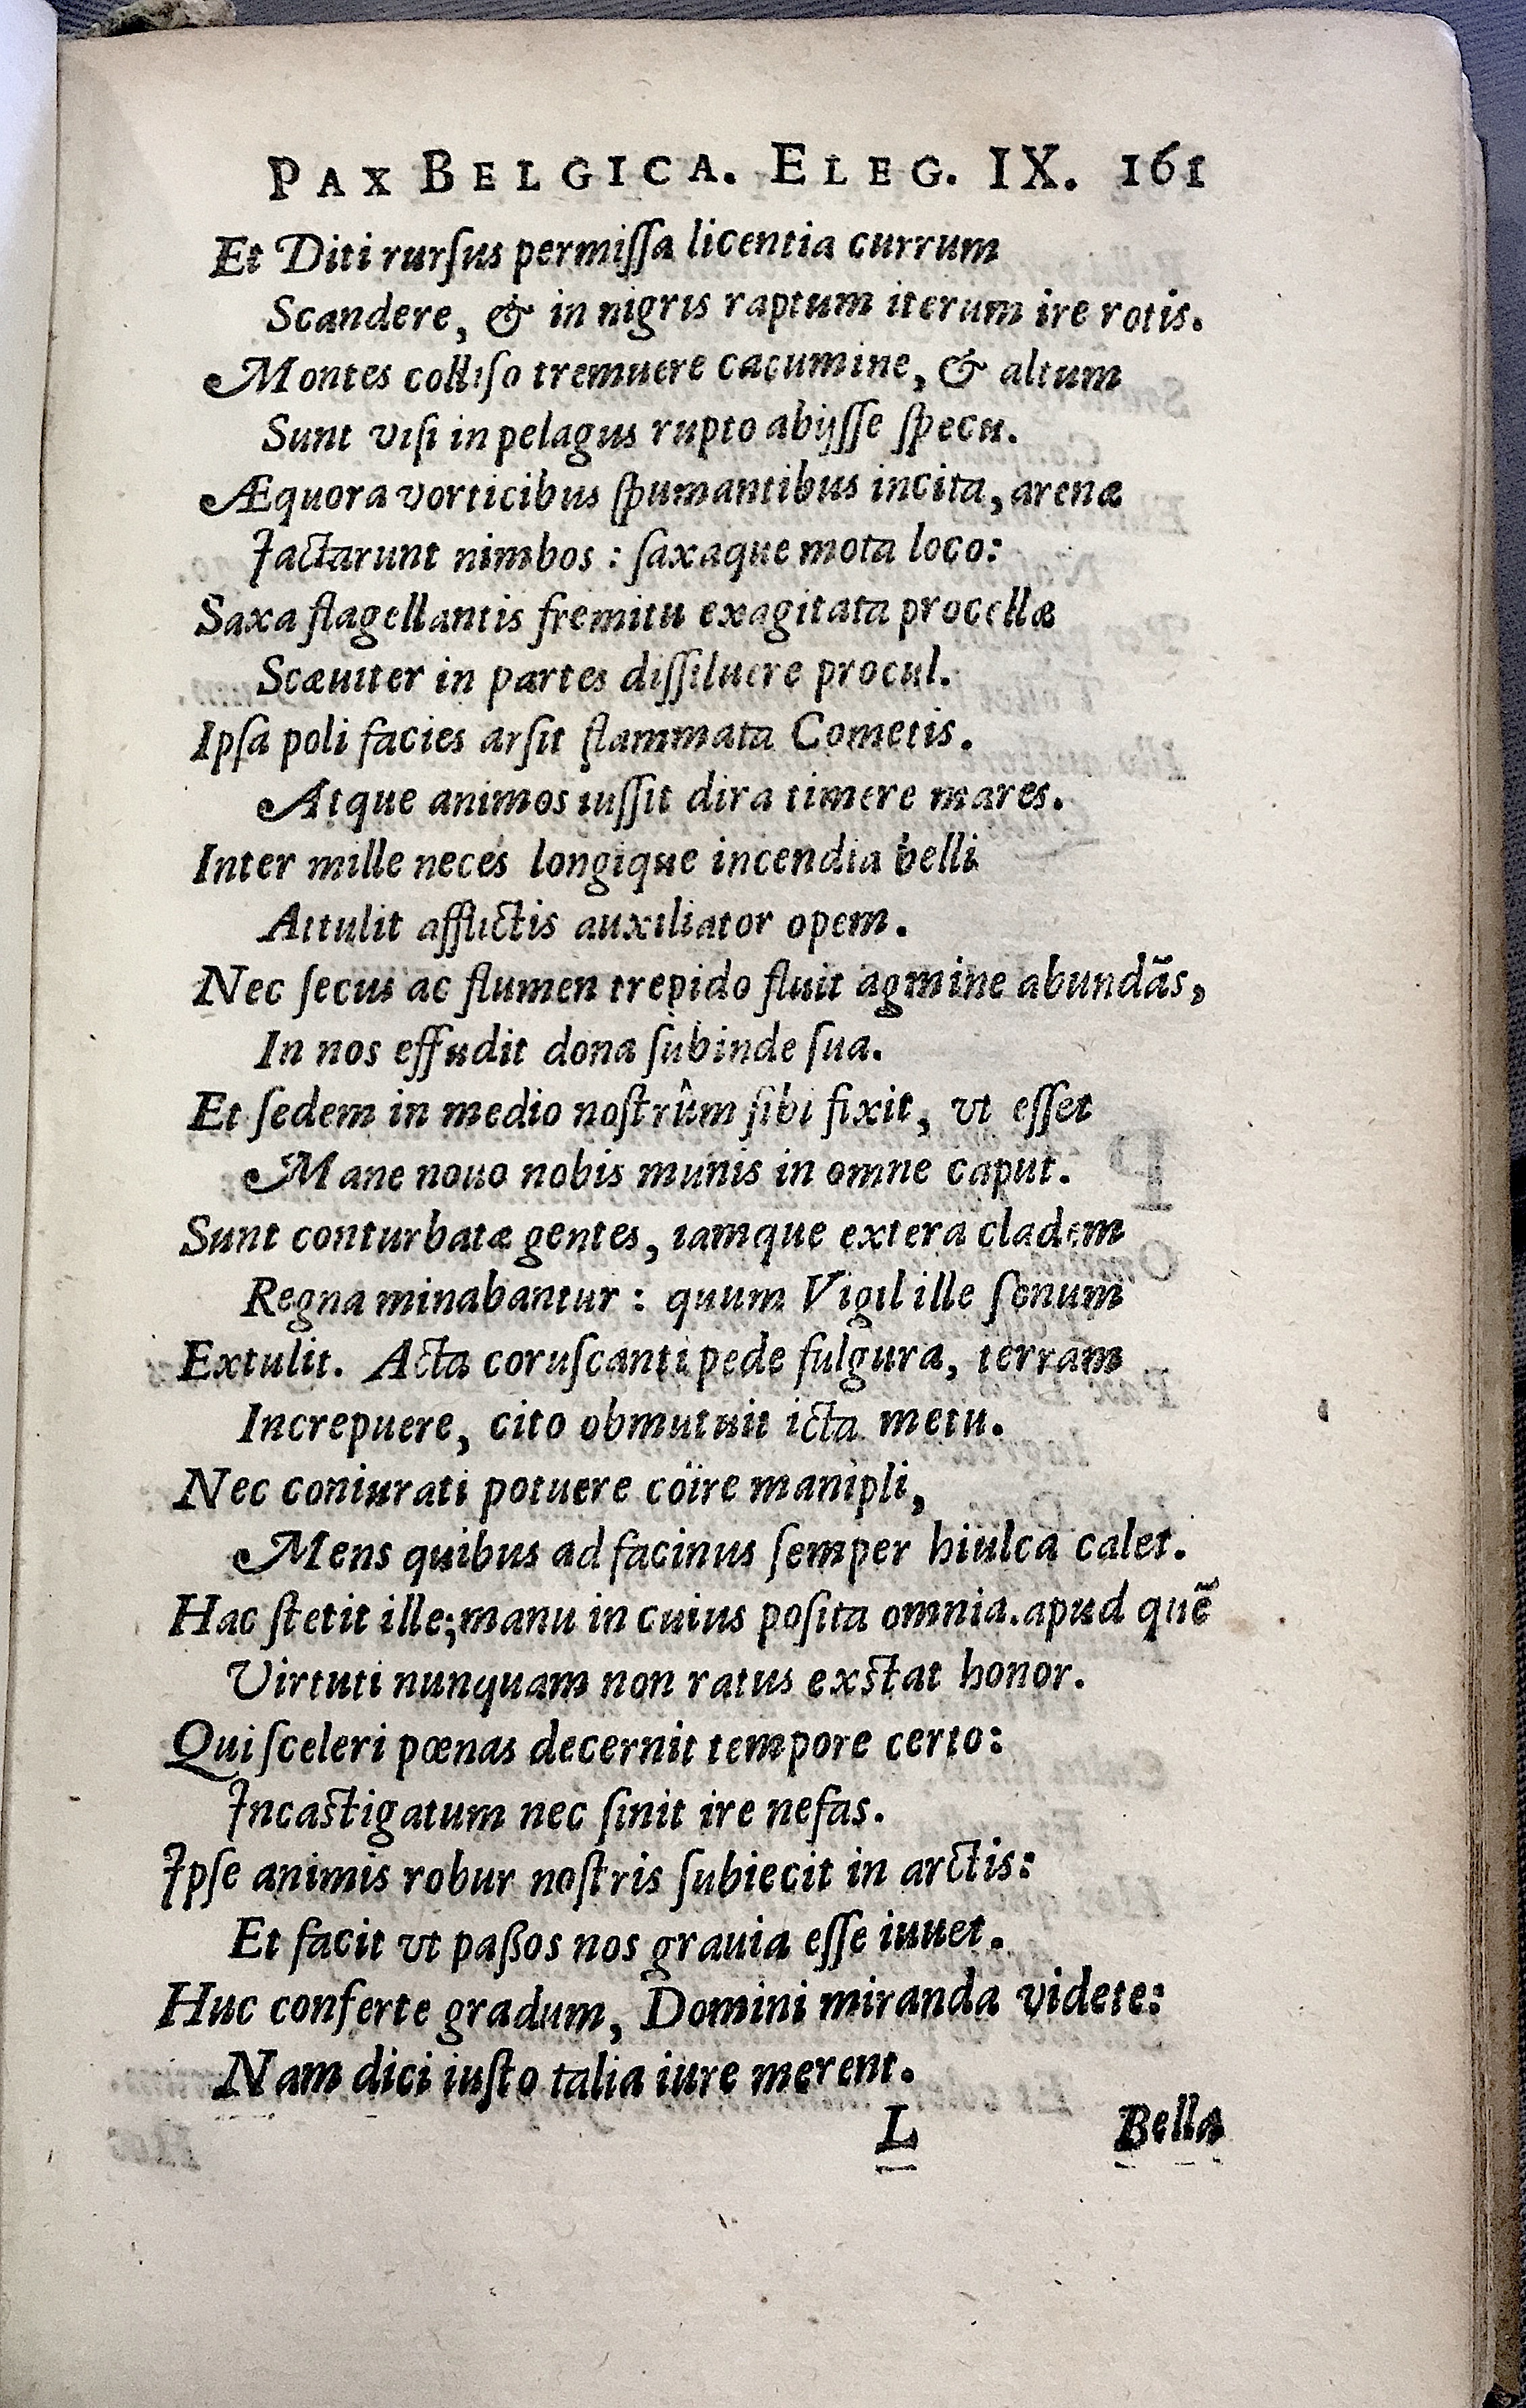 PAX BELGICA. ELEG. IX. 161
Et Diti rurſus permiſſa licentia currum
Scandere, & in nigris raptum iterum ire rotis.
Montes colliſo tremuere cacumine, & altum
Sunt viſi in pelagus rupto abijſſe ſpecu.
Æquora vorticibus ſpumantibus incita, arenæ
Jactarunt nimbos : ſaxaque mota loco:
Saxa flagellantis fremitu exagitata procellæ
Scæuiter in partes diſſiluere procul.
Ipſa poli facies arſit flammata Cometis.
Atque animos iuſſit dira timere mares.
Inter mille neces longique incendia belli
Attulit afflictis auxiliator opem.
Nec ſecus ac flumen trepido fluit agmine abundãs,
In nos effudit dona ſubinde ſua.
Et ſedem in medio noſtrûm ſibi fixit, vt eſſet
Mane nouo nobis munis in omne caput.
Sunt conturbatæ gentes, iamque extera cladem
Regna minabantur : quum Vigil ille ſonum
Extulit. Acta coruſcanti pede fulgura, terram
Increpuere, cito obmutuit icta metu.
Nec coniurati potuere coïre manipli,
Mens quibus ad facinus ſemper hiulca calet.
Hac ſtetit ille; manu in cuius poſita omnia. apud quẽ
Virtuti nunquam non ratus exſtat honor.
Qui ſceleri pœnas decernit tempore certo:
Jncaſtigatum nec ſinit ire nefas.
Jpſe animis robur noſtris ſubiecit in arctis:
Et facit vt paßos nos grauia eſſe iuuet.
Huc conferte gradum, Domini miranda videte:
Nam dici iuſto talia iure merent.
L Bella